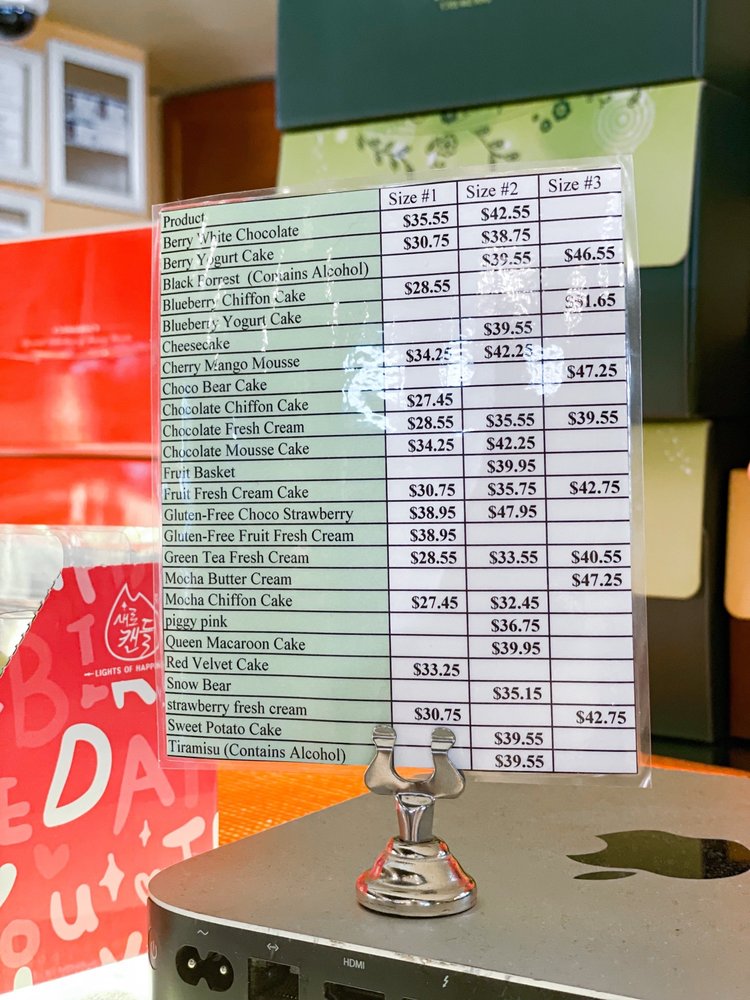 Product Size #1 Size #2 Size #3
Berry White Chocolate $35.55 $42.55
Berry Yogurt Cake $30.75 $38.75
Black Forrest (Contains Alcohol) $39.55 $46.55
Blueberry Chiffon Cake $28.55
Blueberry Yogurt Cake
Cheesecake $39.55
Cherry Mango Mousse $34.25 $42.25
Choco Bear Cake $47.25
Chocolate Chiffon Cake $27.45
Chocolate Fresh Cream $28.55 $35.55 $39.55
Chocolate Mousse Cake $34.25 $42.25
Fruit Basket $39.95
Fruit Fresh Cream Cake $30.75 $35.75 $42.75
Gluten-Free Choco Strawberry $38.95 $47.95
Gluten-Free Fruit Fresh Cream $38.95
Green Tea Fresh Cream $28.55 $33.55 $40.55
Mocha Butter Cream $47.25
Mocha Chiffon Cake $27.45 $32.45
piggy pink $36.75
Queen Macaroon Cake $39.95
Red Velvet Cake $33.25
Snow Bear $35.15
strawberry fresh cream $30.75 $42.75
Sweet Potato Cake $39.55
Tiramisu (Contains Alcohol) $39.55
새로
캔들
LIGHTS OF
HDMI